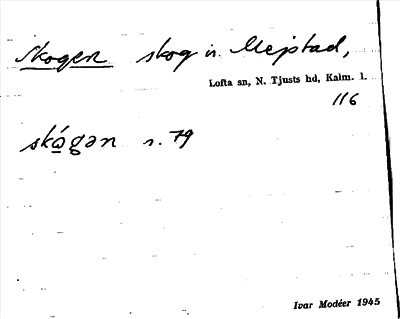 Skogen skog i. Mejstad,
Lofta sn, N. Tjusts hd, Kalm. l.
116
skógən s. 79
Ivar Modéer 1945